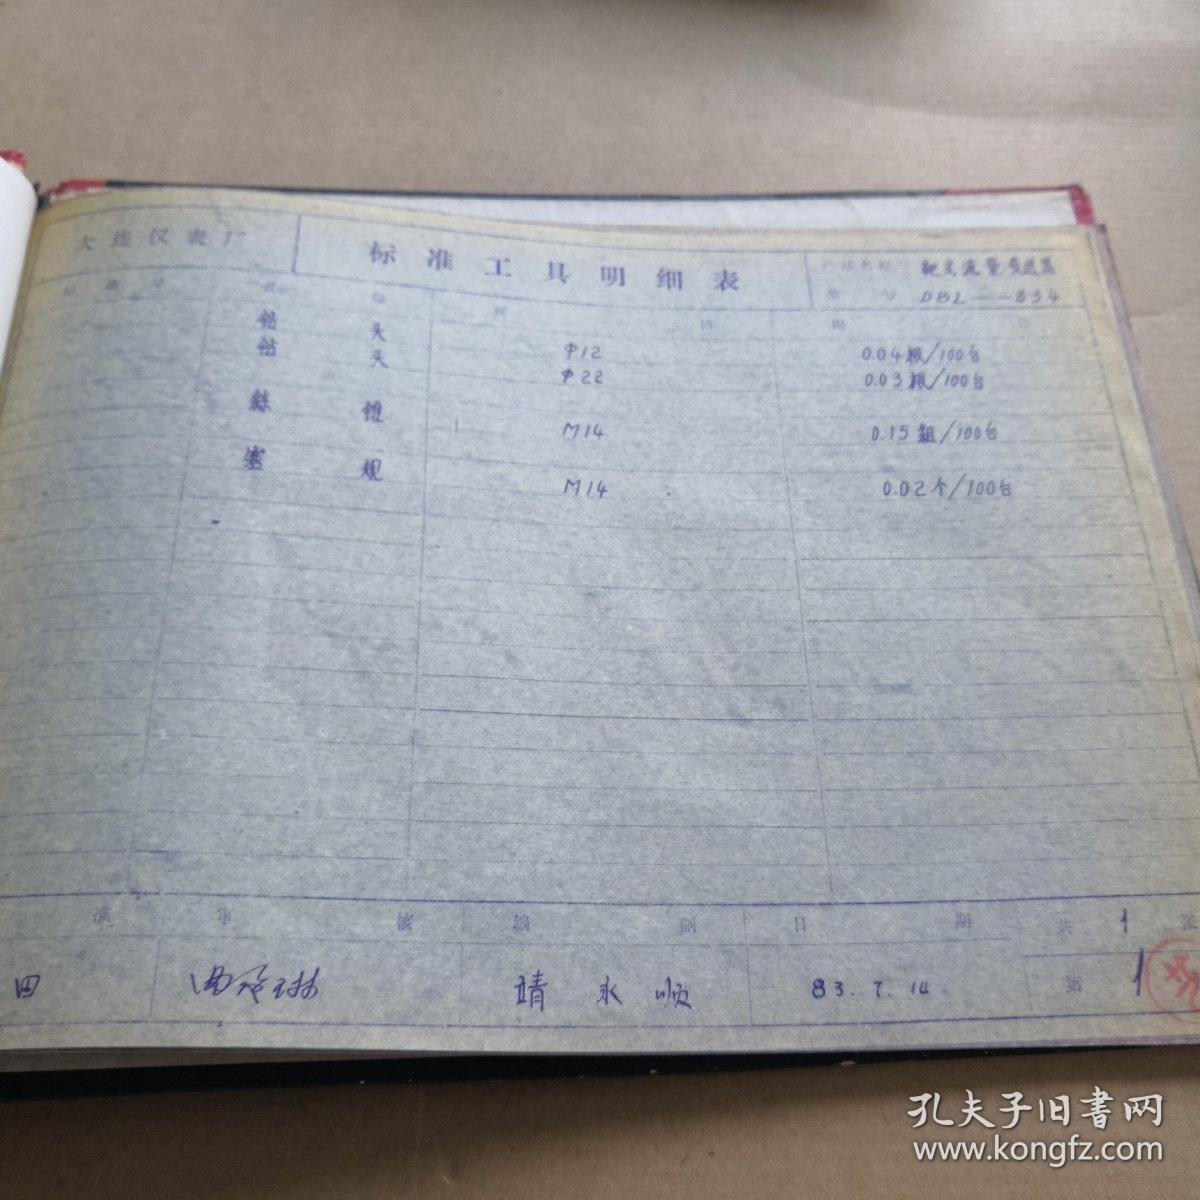 大连仪表厂
标准工具明细表
产品名称 靶式流量变送器
型号 DBL--834
名称 规格
钻头 Φ12 0.04根/100台
钻头 Φ22 0.03根/100台
絲锥 M14 0.15組/100台
塞规 M14 0.02个/100台
准 审核 编制 日期 共1张
田 靖永顺 83.7.14 第1
孔夫子旧書网
www.kongfz.com